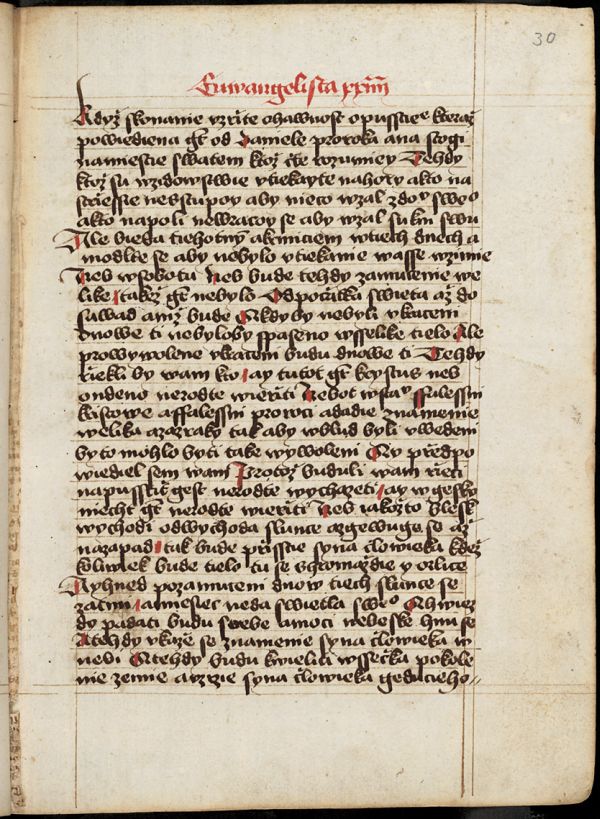 30
Euwangelista xxiiii
Když skonanie vzrite ohawnost opusstie kteraž
powiediena gt od Daniele proroka ana stogi
namiestie swatem ktož čte rozumiey Tehdy
ktož su wzidowstwie vtiekayte nahory akto na
střessie nesstupoy aby nieco wzal zdoᵘ sweᵒ
akto napoli newratoy se aby wzal sukni swu
Ale bieda tiehotnym akrmiciem wtiech dnech a
modlte se aby nebylo vtiekanie wasse wzimie
Neb wsobotu Neb bude tehdy zamucenie we
like takež gt nebylo Odpočatka swieta až do
sawad aniž bude Akdyby nebyli vkraceni
dnowe ti nebyloby spaseno wsselike tielo Ale
prowywolene vkraceni budu dnowe ti Tehdy
riekliby wam kto ay tutot gt krystus neb
ondeno nerodte wieriti Nebot wstaᵘ ffalessni
kristowe affalessni proroci adadie znamenie
welika azazraky tak aby wblud byli vwedeni
byto mohlo byti take wywoleni Ay předpo
wiediel sem wam Protož buduli wam rieci
napussti gest nerodte wychazeti ay wgesky
niecht gt nerodte wieriti Neb iakožto blesk
wychodi odwychoda slunce azgewuge se až
nazapad tak bude přisstie syna člowieka kdež
koliwiek bude tielo tu se shromazdie y orlice
Ayhned pozamuceni dnow tiech slunce se
zatmi amiesiec neda swietla sweᵒ Ahwiez
dy padati budu snebe amoci nebeske hnu se
Atehdy vkaže se znamenie syna člowieka w
nebi Atehdy budu kwieliti wssečka pokole
nie zemie avzrie syna člowieka geduciehoᐟᐟ